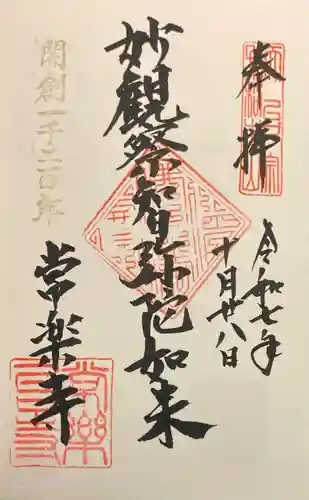 奉拝
令和七年
十月廿八日
妙観察智弥陀如来
開創一千二百年
常楽寺